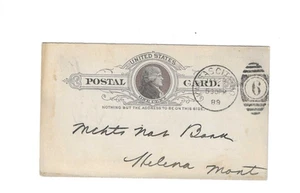 UNITED STATES
POSTAL CARD.
ONE CENT.
NOTHING BUT THE ADDRESS TO BE ON THIS SIDE.
89
6
Mchts Nat Bank
Helena Mont